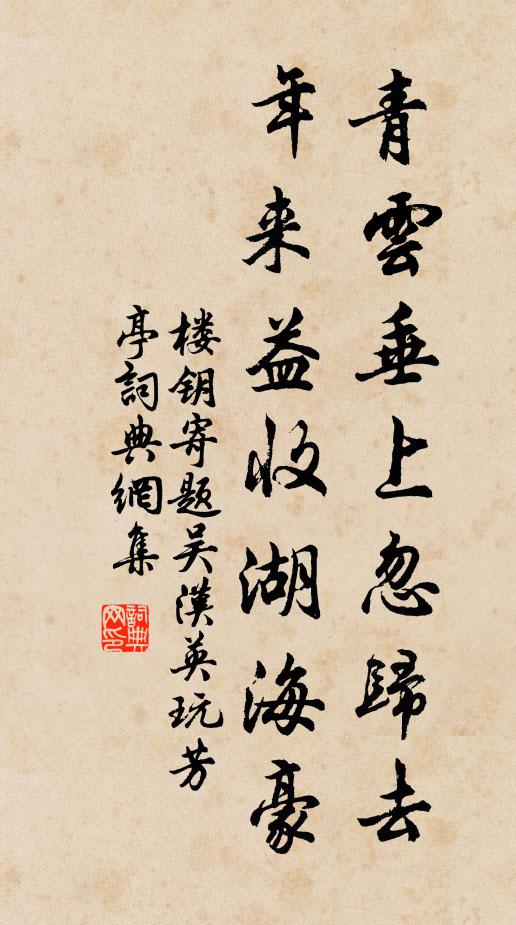 青雲垂上忽歸去
年来益收湖海豪
楼钥寄题吴漢英玩芳
亭詞典網集
詞典
网印